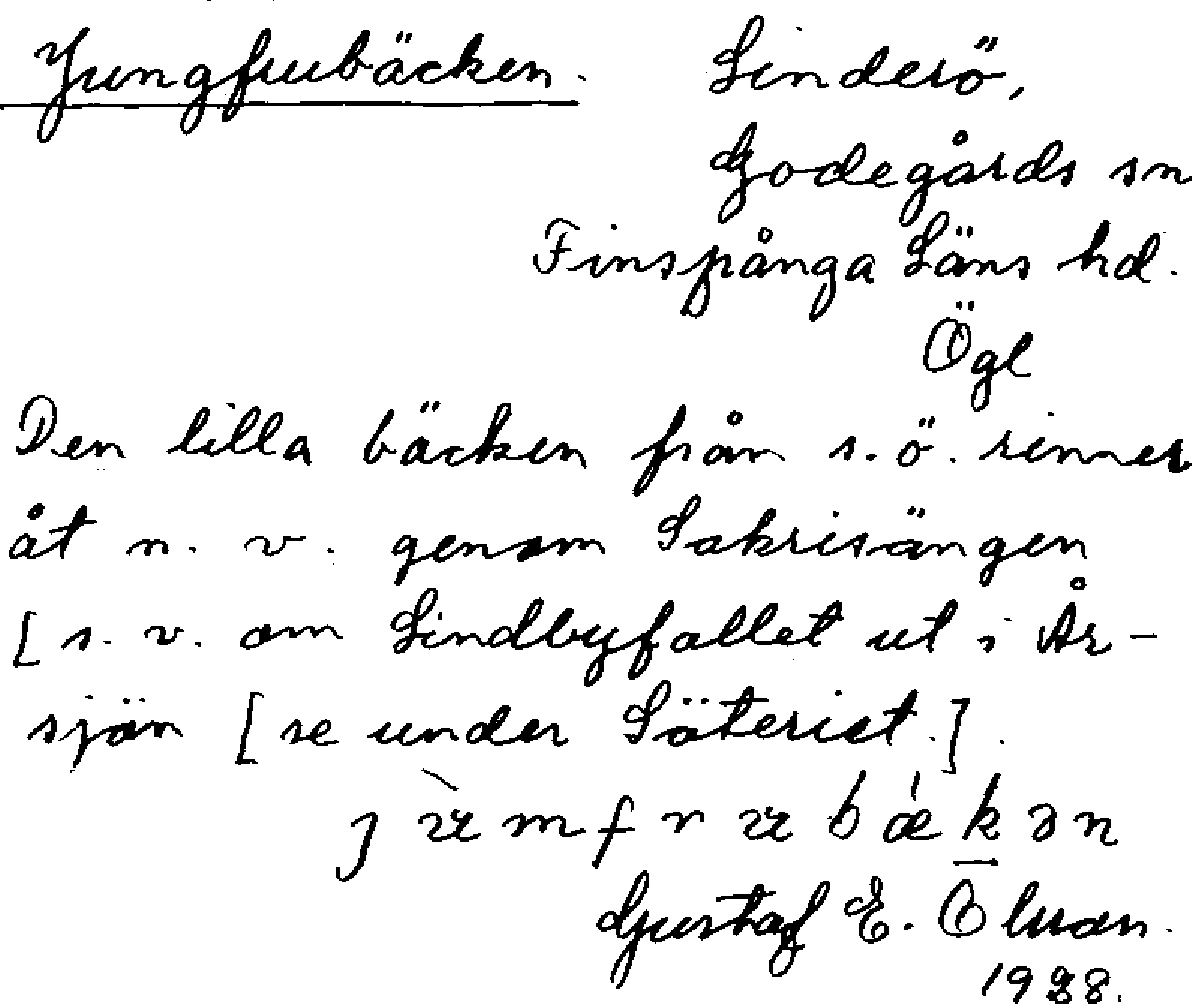 Jungfrubäcken. Linderö,
Godegårds sn
Finspånga Läns hd.
Ögl
Den lilla bäcken från s.ö. rinner
åt n. v. genom Sakrisängen
[s. v. om Lindbyfallet ut i År-
sjön [se under Säteriet.].
Gustaf E.